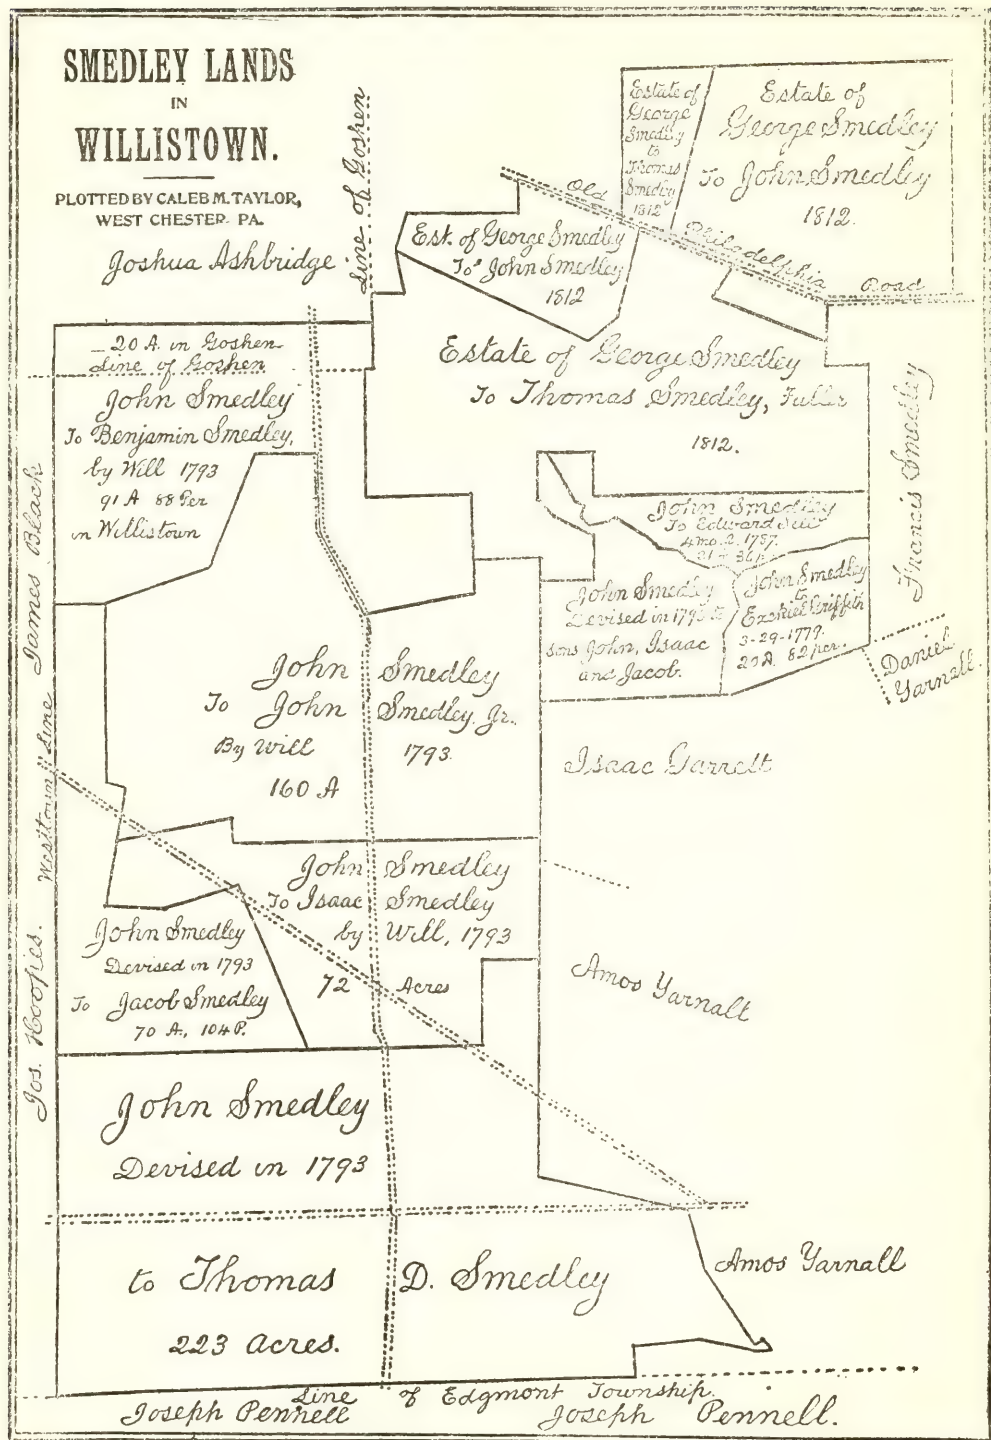 SMEDLEY LANDS
IN
WILLISTOWN.
PLOTTED BY CALEB M. TAYLOR,
WEST CHESTER PA.
Joshua Ashbridge
Line of Goshen
Estate of
George
Smedley
to
Thomas
Smedley
1812
Estate of
George Smedley
To John Smedley
1812.
Old Philadelphia Road
Est. of George Smedley
To John Smedley
1812
Estate of George Smedley
To Thomas Smedley, Fuller
1812.
20 A. in Goshen
Line of Goshen
John Smedley
To Benjamin Smedley,
by Will 1793
91 A 88 Per
in Willistown
James Black
Francis Smedley
John Smedley
To Edward
4 mo. 2. 1787.
John Smedley
Devised in 1793 to
sons John, Isaac
and Jacob.
John Smedley
to
Ezekiel Griffith
3-29-1779.
20 A. 82 per.
Daniel
Yarnall.
John Smedley
To John Smedley, Jr.
By Will 1793.
160 A
Isaac Garrett
Westtown Line
John Smedley
To Isaac Smedley
by Will, 1793
72 Acres
John Smedley
Devised in 1793
To Jacob Smedley
70 A., 104 P.
Amos Yarnalt
Jos. Hoopes.
John Smedley
Devised in 1793
to Thomas D. Smedley
223 Acres.
Amos Yarnall
Line of Edgmont Township.
Joseph Pennell
Joseph Pennell.